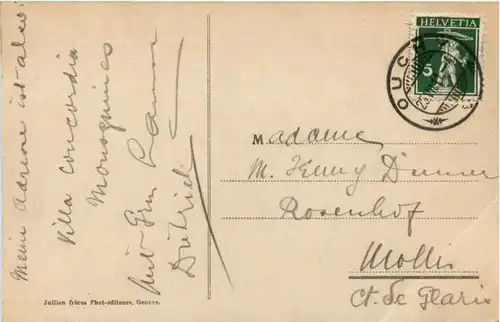 Meine Adresse ist also:
Villa Concordia
Mousquines
Lausanne
Dietrich
HELVETIA
5
OUCHY
Madame
M. Jenny Dinner
Rosenhof
Mollis
Ct. de Glaris
Jullien frères Phot-éditeurs, Genève.